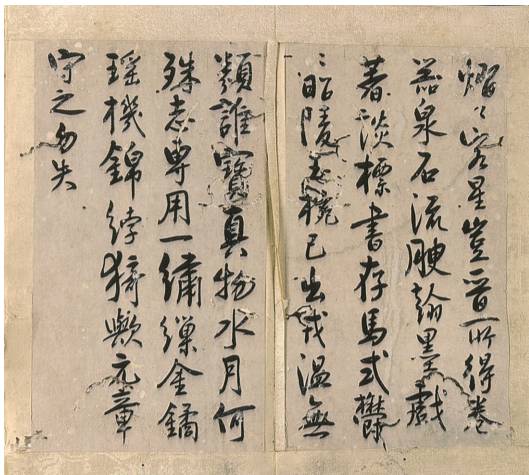 熠々客星豈晉所得卷
器泉石流腴翰墨戲
著淡標書存馬式鬱
々昭陵玉椀已出戎溫無
類誰寶真物水月何
殊志專用一繡繅金鐍
瑤機錦綍猗歟元章
守之勿失